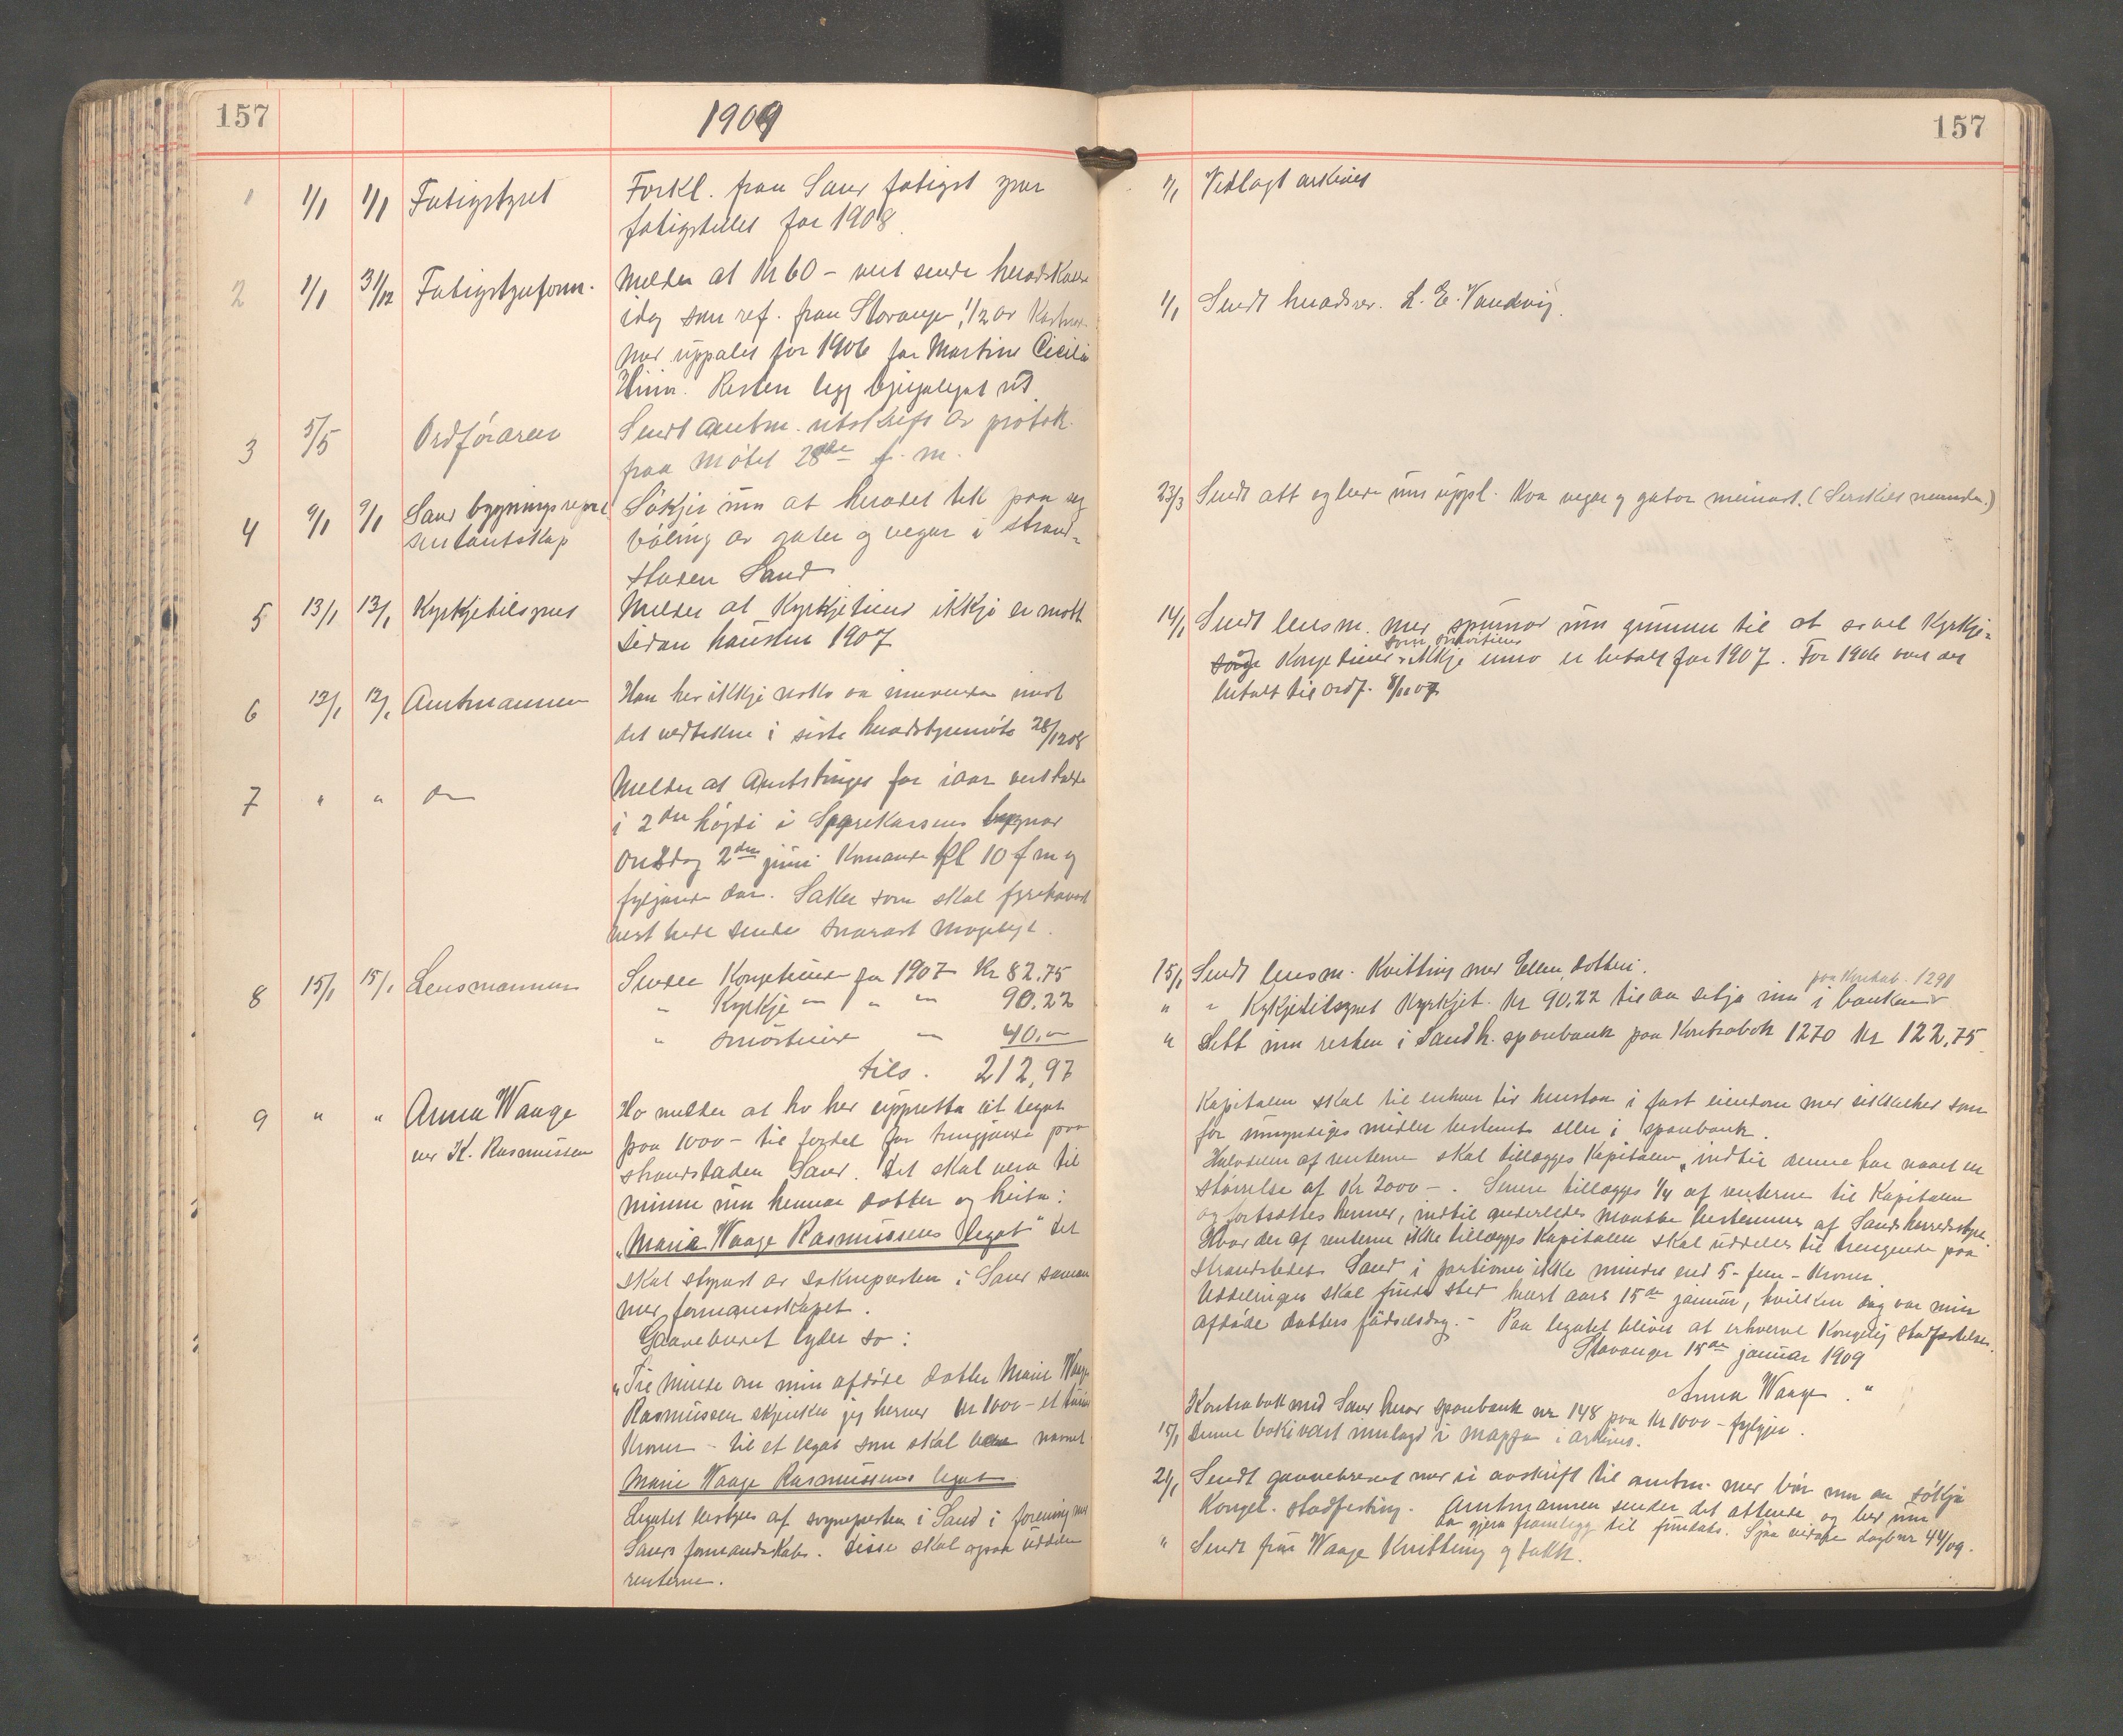 157
1909
1 1/1 1/1 Fatigstyret Forkl. fraa Sand fatigst yver
fatigstellet for 1908.
2 1/1 31/12 Fatigstyreform. Melder at Kr 60 – vert sende
idag som ref. fraa Stavanger, 1/2 av
uppalet for 1906 for Martine Cicilie
Resten legg ut
3 5/5 Ordføraren Sendt amtm. utskrift av protok.
fraa møtet 28de f. m.
4 9/1 9/1 Sand bygningsrepre- Søkjer um at heradet tek paa seg
sentantskap bøling av gater og vegar i strand-
staden Sand
5 13/1 13/1 Kyrkjetilsynet Melder at Kyrkjetiend ikkje er mott
sidan hausten 1907
6 13/1 13/1 Amtmannen Han hev ikkje noko aa innvenda imot
det vedtekne i siste heradstyremøte 28/12 08
7 " " do Melder at Amtstinget for iaar vert halde
i 2den høgdi i Sparekassens bygnad
Onsdag 2den juni Komande Kl 10 f m og
fylgjande dar. Saker som skal fyrehavast
vert bede sende snarast mogelegt.
8 15/1 15/1 Lensmannen Sender Kongetiend for 1907 Kr 82,75
" Kyrkje " " " 90.22
" smørtiend " 40,–
tils. 212,97
9 " " Anna Waage Ho melder at ho hev uppretta eit legat
ved K. Rasmussen paa 1000 – til fordel for trengjande paa
strandstaden Sand. Det skal vera til
minne um hennar dotter og heita:
„Maria Waage Rasmussens legat" Det
skal styrast av soknepresten i Sand saman
med formannskapet.
Gaavebrevet lyder so:
„Til minde om min afdøde datter Marie Waage
Rasmussen skjenker jeg herved Kr 1000 – et tusen
Kroner – til et legat som skal være navnet
Marie Waage Rasmussens legat
Legatet bestyres af sognepresten i Sand i forening med
Sands formandskab. Disse skal ogsaa uddele
renterne.
157
1/1 Vedlagt arkivet
1/1 Sendt heradskas. L. E. Vandvig.
23/3 Sendt att og bede um uppl. kva vegar og gator meinast. (Serskilt nemnda.)
14/1 Sendt lensm. med spurnad um grunnen til at so vel Kyrkje-
som
Kongetiend ikkje enno er betalt for 1907. For 1906 vart det
betalt til ordf. 8/11 07
15/1 Sendt lensm. Kvitting med Ellen, dotteri.
paa Kontrab. 1291
" " Kyrkjetilsynet Kyrkjet. Kr 90.22 til aa setja inn i banken
" Sett inn resten i Sand h. sparebank paa Kontrabok 1270 Kr 122,75
Kapitalen skal til enhver tid henstaa i fast eiendom med sikkerhed som
for umyndiges midler bestemt eller i sparebank.
Halvdelen af renterne skal tillægges Kapitalen, indtil denne har naaet en
størrelse af Kr 2000 –. Senere tillægges 1/4 af renterne til Kapitalen
og fortsættes hermed, indtil anderledes maatte bestemmes af Sands herredsstyre.
Hvad der af renterne ikke tillægges Kapitalen skal uddeles til trengende paa
strandstedet Sand i portioner ikke mindre end 5 – fem – Kroner.
Uddelingen skal finde sted hvert aars 15de januar, hvilken dag var min
afdøde datters fødselsdag. – Paa legatet bliver at erhverve Kongelig stadfæstelse.
Stavanger 15de januar 1909
Anna Waage."
Kontrabok med Sand herad sparebank nr 148 paa Kr 1000 – fylgjer.
15/1 Denne boki vart innlagd i mappa i arkivet.
21/1 Sendt gaavebrevet med ei avskrift til amtm. med bøn um aa søkja
Kongel. stadfesting. Amtmannen sender det attende og bed um
aa gjera framlegg til fundats. Sjaa vidare dagb nr 44/09.
" Sendt fru Waage Kvitting og takk.